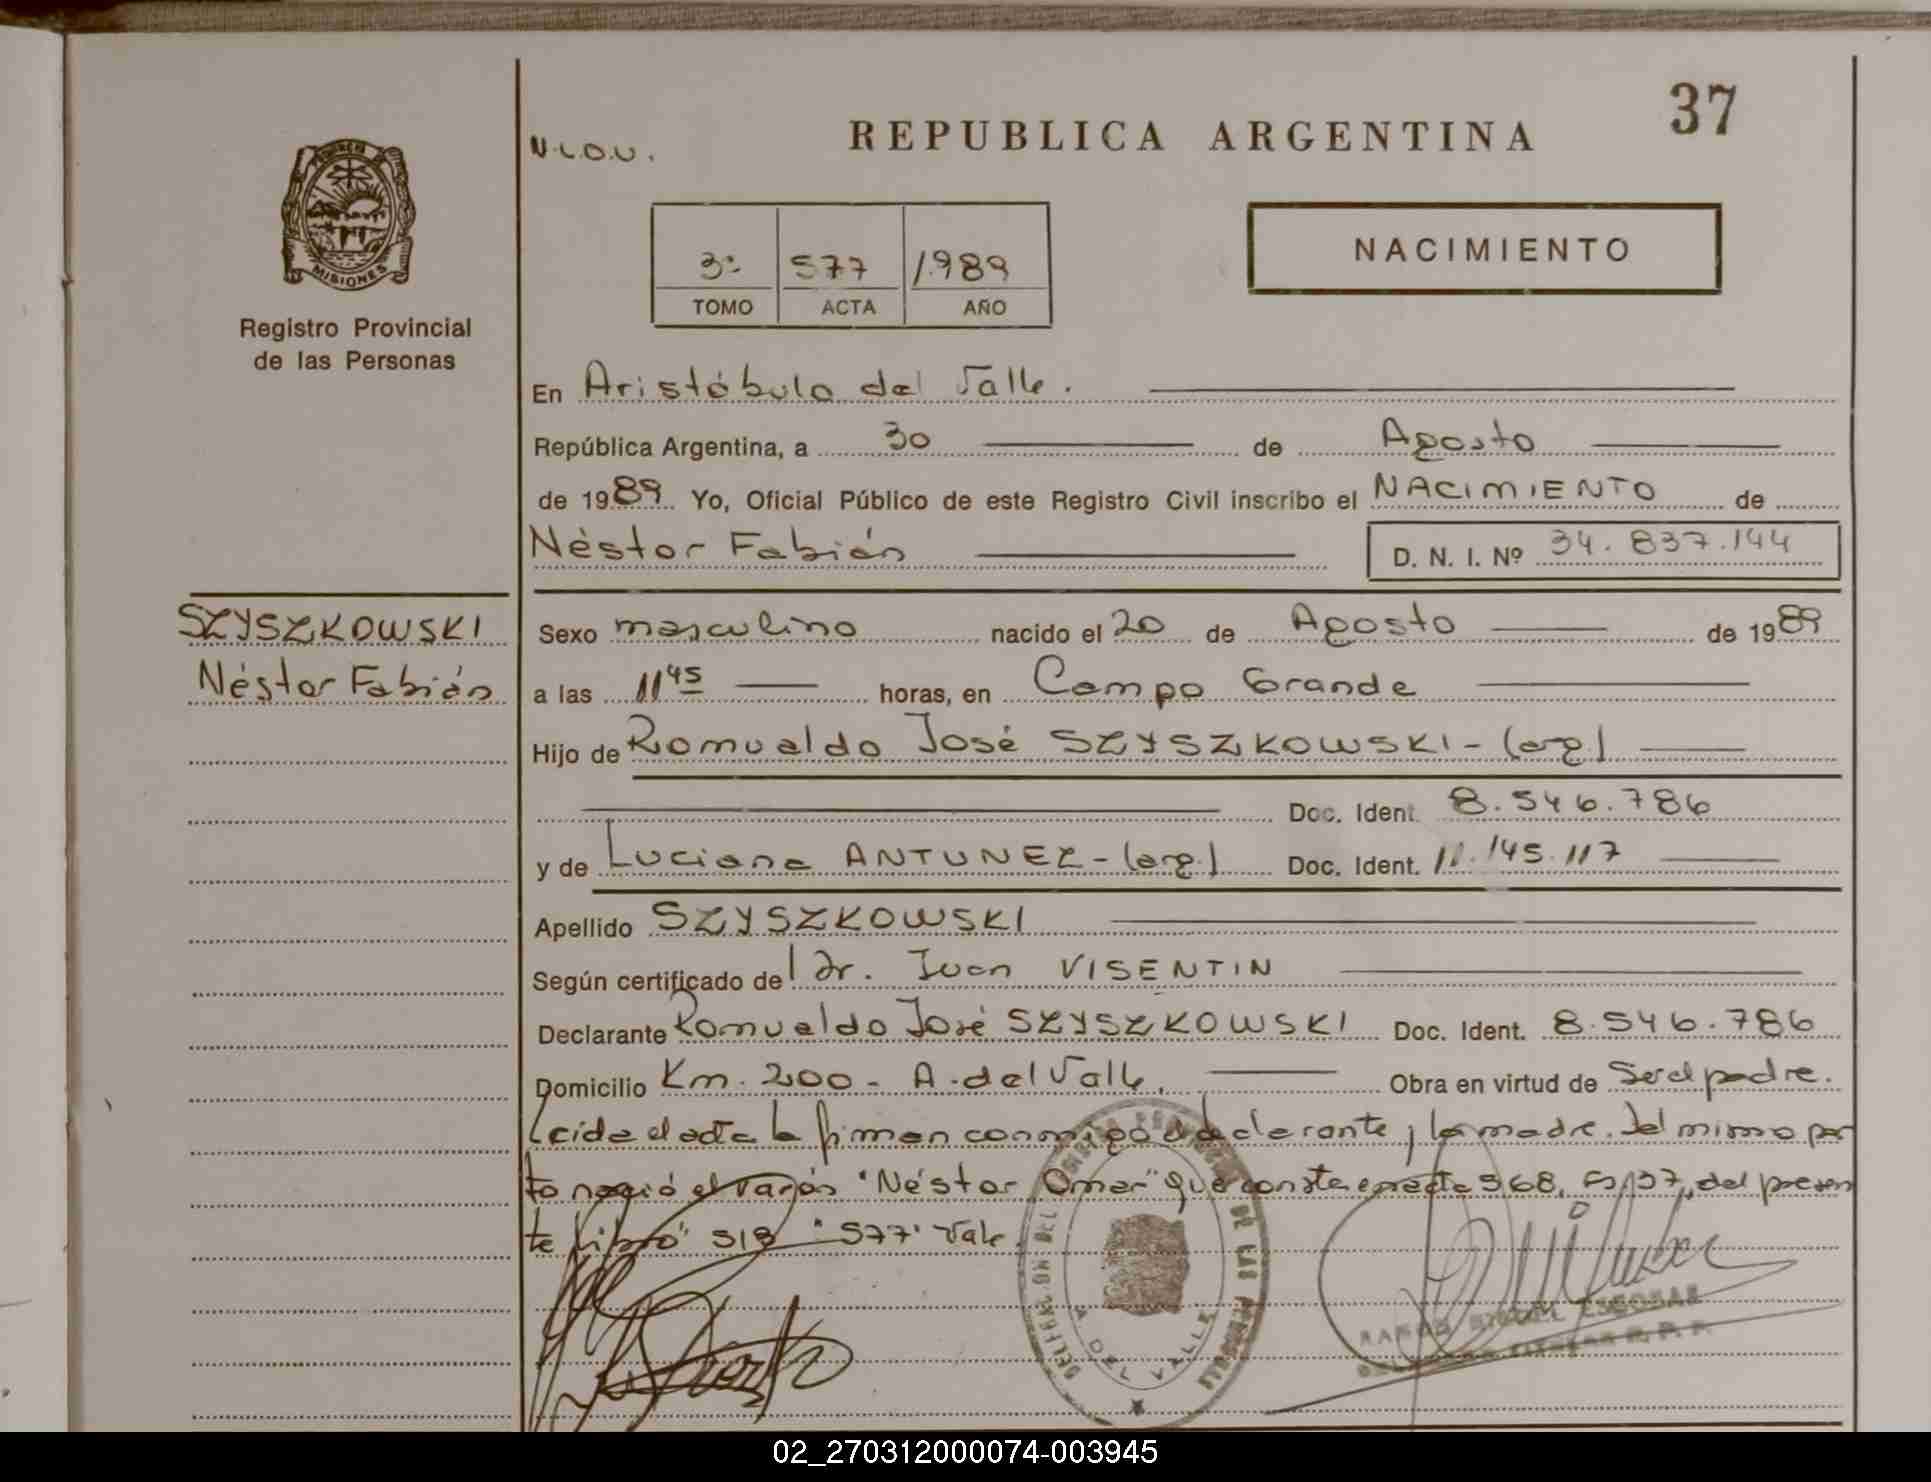 37
N.L.O.U.
REPUBLICA ARGENTINA
MISIONES
Registro Provincial
de las Personas
3º 577 1989
TOMO ACTA AÑO
NACIMIENTO
En Aristóbulo del Valle.
República Argentina, a 30 de Agosto
de 1989 Yo, Oficial Público de este Registro Civil inscribo el NACIMIENTO de
Néstor Fabián D. N. I. Nº 34.837.144
SZYSZKOWSKI
Néstor Fabián
Sexo masculino nacido el 20 de Agosto de 1989
a las 11 45 horas, en Campo Grande
Hijo de Romualdo José SZYSZKOWSKI - (arg.)
Doc. Ident. 8.546.786
y de Luciana ANTUNEZ - (arg.) Doc. Ident. 11.145.117
Apellido SZYSZKOWSKI
Según certificado del Dr. Juan VISENTIN
Declarante Romualdo José SZYSZKOWSKI Doc. Ident. 8.546.786
Domicilio Km. 200 - A. del Valle. Obra en virtud de Ser el padre.
Leída el acta la firman conmigo el declarante y la madre. Del mismo par
to nació el varón "Néstor Omar" que consta en acta 568, Fs 37, del presen
te libro" S/B "577" Vale
DELEGACION DEL REGISTRO PROVINCIAL DE LAS PERSONAS
A. DEL VALLE
RAMON MIGUEL ESCOBAR
02_270312000074-003945